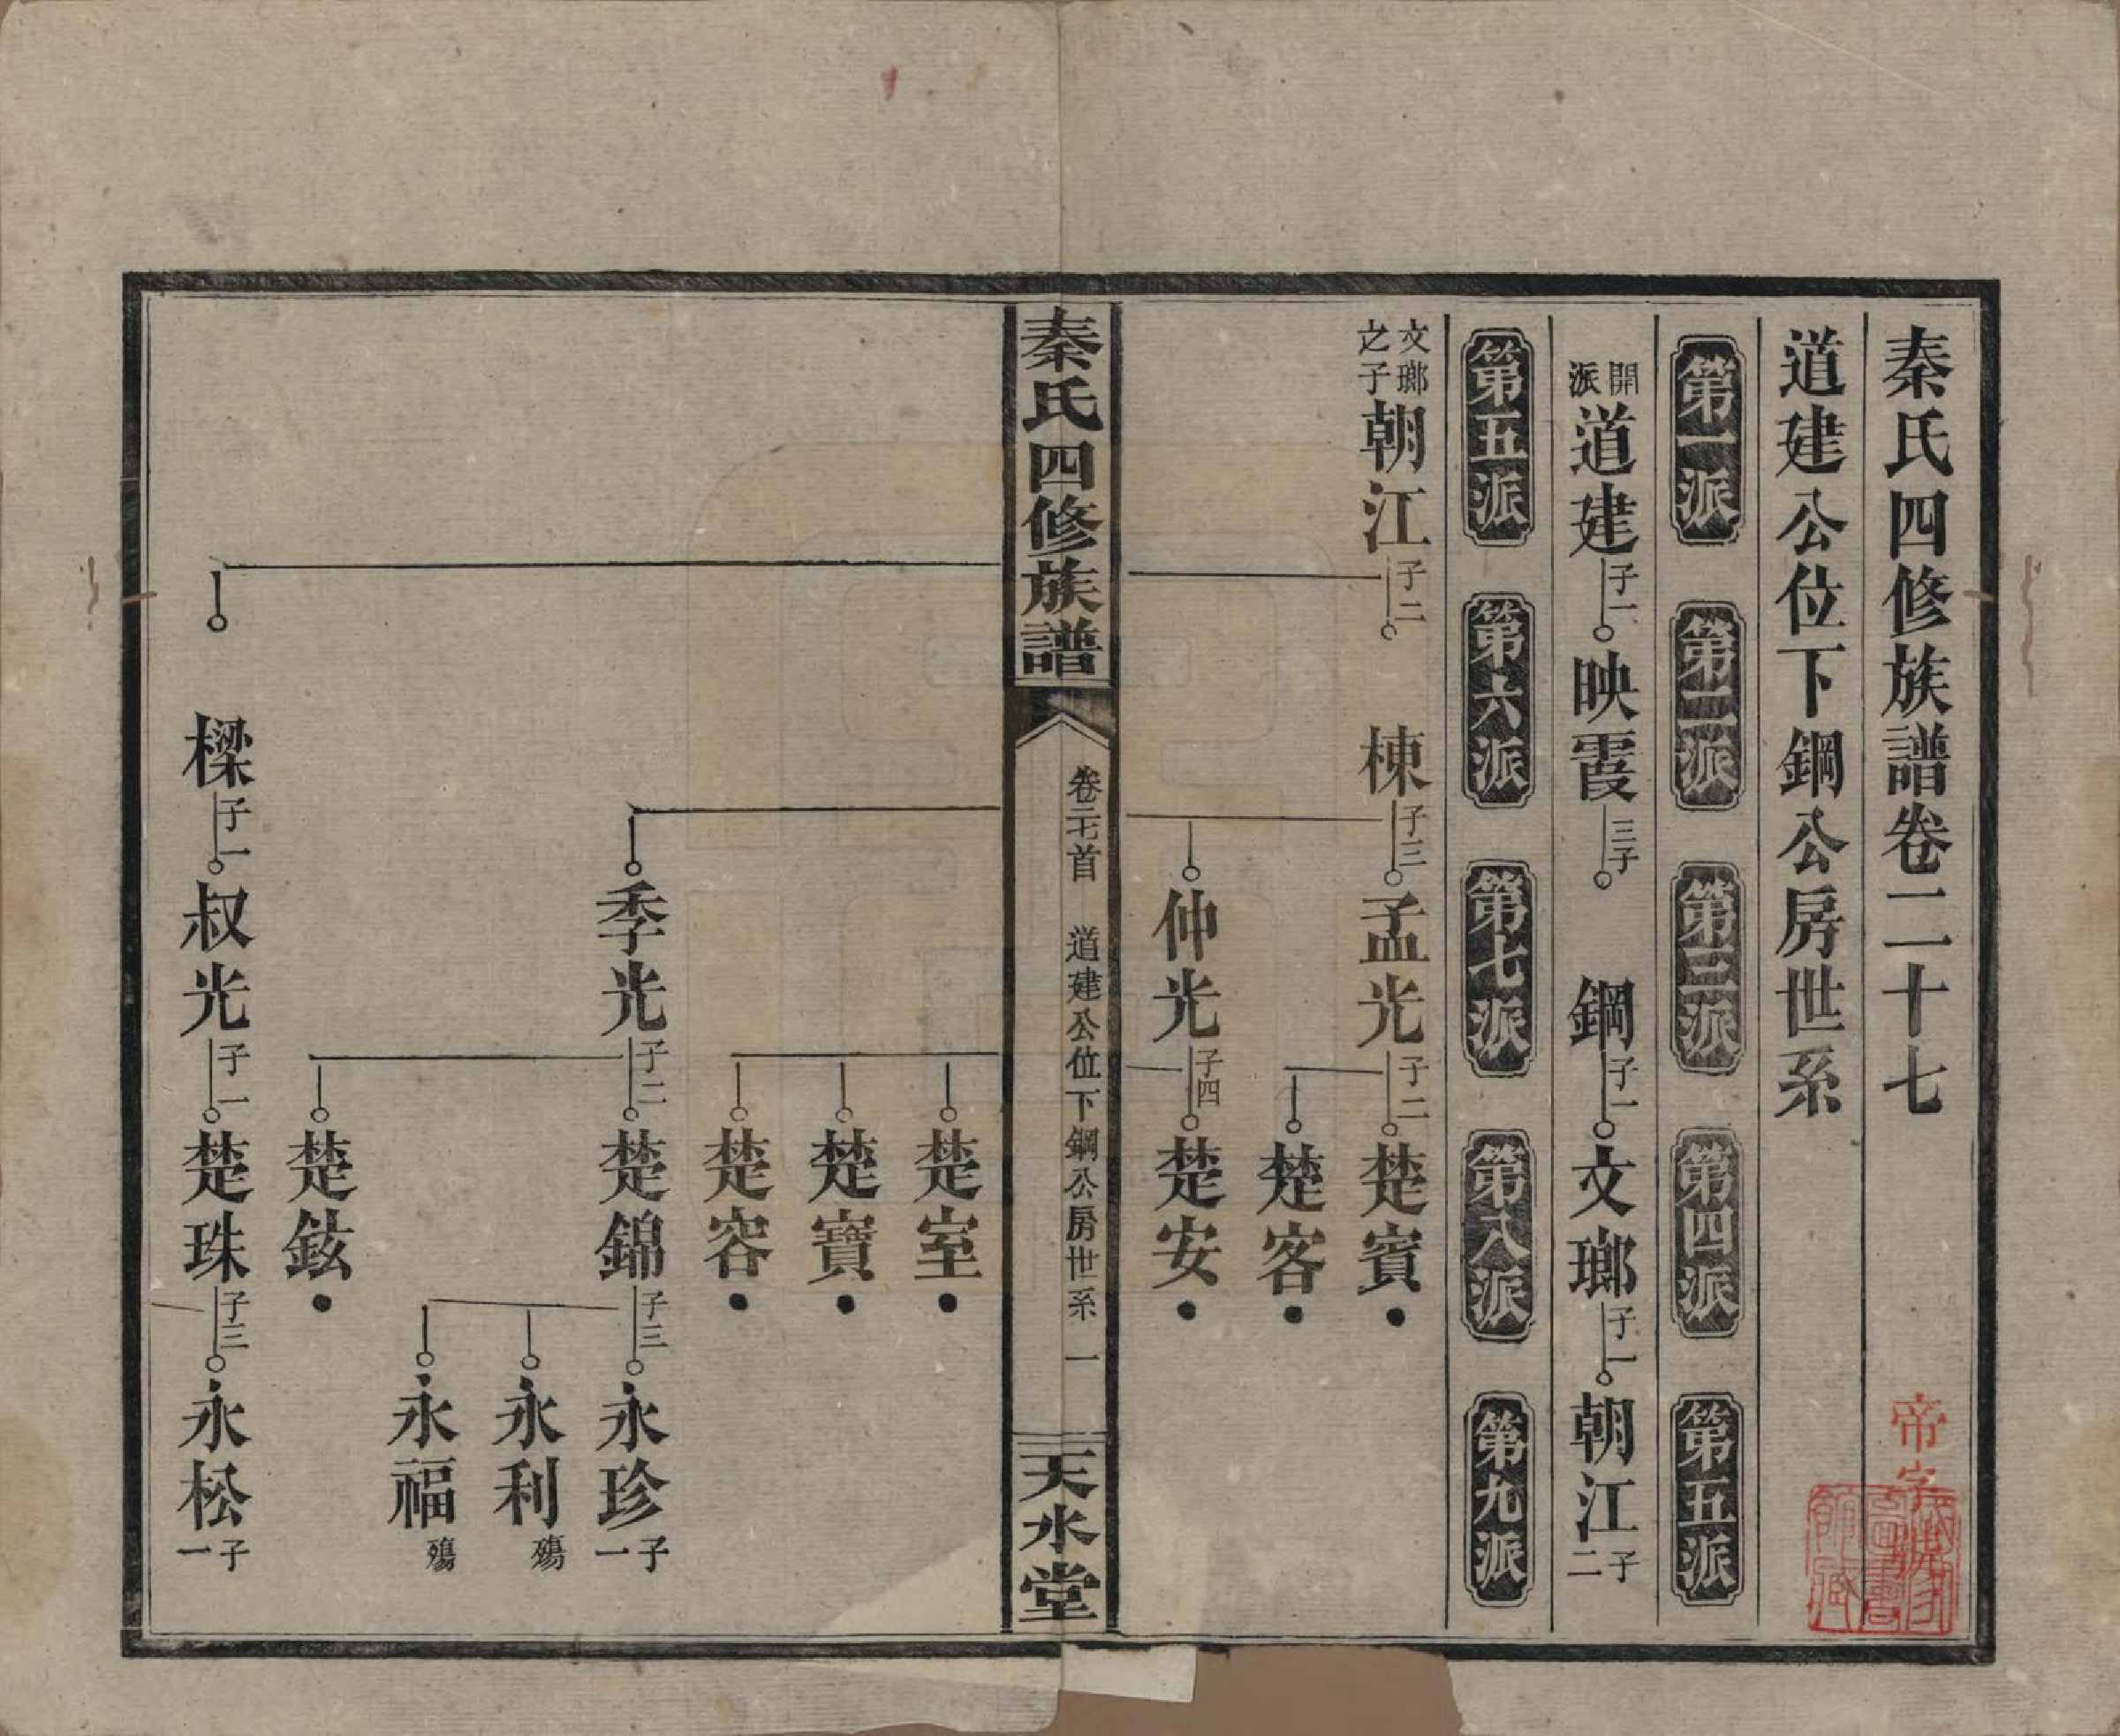 秦氏四修族譜卷二十七
帝字
道建公位下鋼公房世系
第一派 第二派 第三派 第四派 第五派
開派 道建 子一 映霞 三子 鋼 子一 文瑯 子一 朝江 子二
第五派 第六派 第七派 第八派 第九派
文瑯之子 朝江 子二 棟 子三 孟光 子二 楚賓
楚客
仲光 子四 楚安
秦氏四修族譜 卷二七首 道建公位下鋼公房世系 一 天水堂
楚室
楚寶
楚容
季光 子二 楚錦 子三 永珍 子一
永利 殤
永福 殤
楚鉉
樑 子一 叔光 子一 楚珠 子三 永松 子一